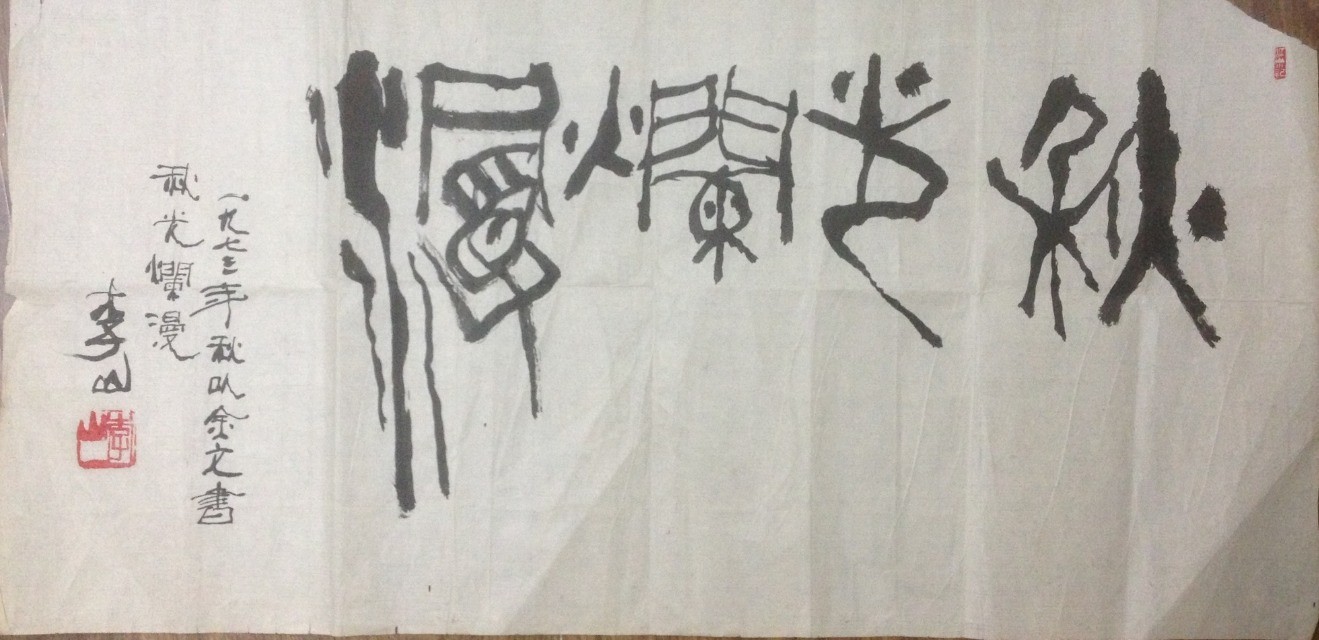 秋光爛漫
一九七三年秋以金文書
秋光爛漫
李山
李山